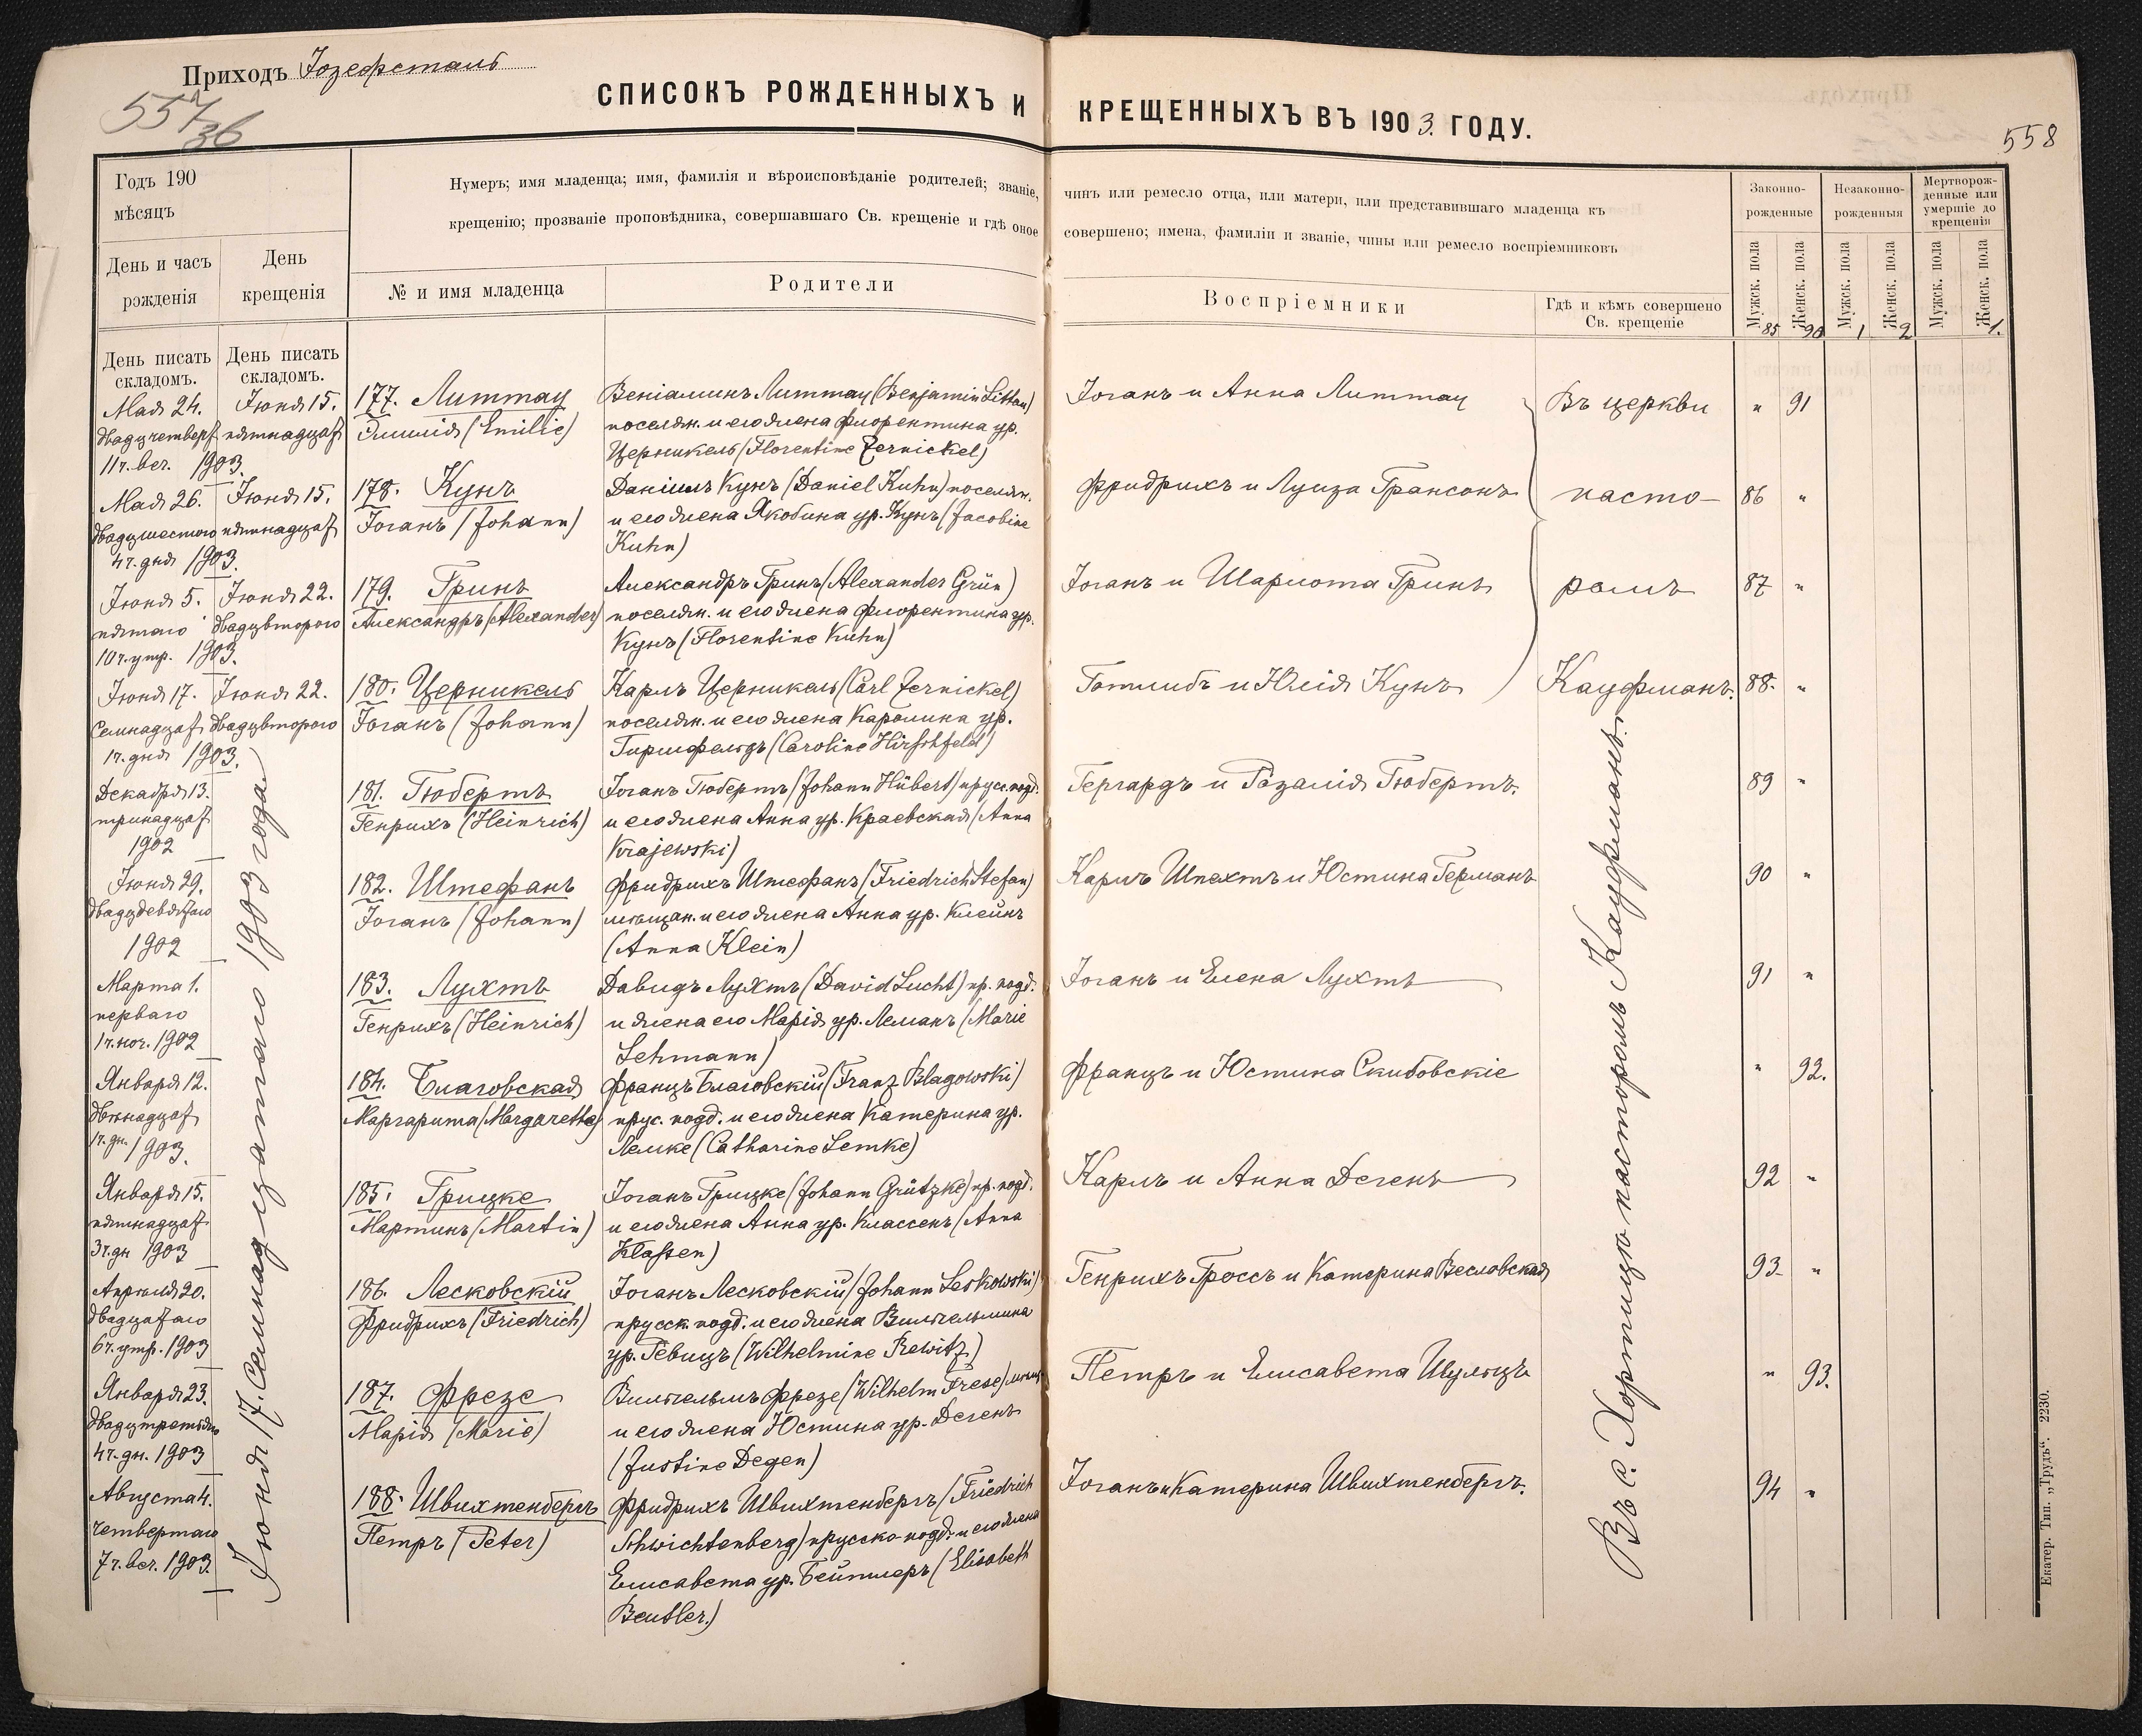 Приходъ Іозефсталь
557/36
СПИСОКЪ РОЖДЕННЫХЪ И КРЕЩЕННЫХЪ ВЪ 1903. ГОДУ.
558
Годъ 190
мѣсяцъ
День и часъ
рожденія
День
крещенія
Нумеръ; имя младенца; имя, фамилія и вѣроисповѣданіе родителей; званіе, чинъ или ремесло отца, или матери, или представившаго младенца къ
крещенію; прозваніе проповѣдника, совершавшаго Св. крещеніе и гдѣ оное совершено; имена, фамиліи и званіе, чины или ремесло воспріемниковъ
№ и имя младенца
Родители
Воспріемники
Гдѣ и кѣмъ совершено
Св. крещеніе
Законно-
рожденные
Незаконно-
рожденныя
Мертворож-
денные или
умершіе до
крещенія
Мужск. пола 85
Женск. пола 90
Мужск. пола 1
Женск. пола 2
Мужск. пола
Женск. пола 1.
День писать
складомъ.
День писать
складомъ.
Мая 24.
двадцчетверт
11ч. веч. 1903.
Іюня 15.
пятнадцат
177. Литтау
Эмилія (Emilie)
Веніаминъ Литтау (Benjamin Littau)
поселян. и его жена Флорентина ур.
Церникель (Florentine Zernickel)
Іоганъ и Анна Литтау
Въ церкви
" 91
Мая 26.
двадцшестого
4ч. дня 1903.
Іюня 15.
пятнадцат
178. Кунъ
Іоганъ (Johann)
Даніилъ Кунъ (Daniel Kuhn) поселян.
и его жена Якобина ур. Кунъ (Jacobine
Kuhn)
Фридрихъ и Луиза Грансонъ
пасто-
86 "
Іюня 5.
пятаго
10ч. утр. 1903.
Іюня 22.
двадцвторого
179. Гринъ
Александръ (Alexander)
Александръ Гринъ (Alexander Grün)
поселян. и его жена Флорентина ур.
Кунъ (Florentine Kuhn)
Іоганъ и Шарлота Гринъ
ромъ
87 "
Іюня 17.
семнадцат
1ч. дня 1903.
Іюня 22.
двадцвторого
180. Церникель
Іоганъ (Johann)
Карлъ Церникель (Carl Zernickel)
поселян. и его жена Каролина ур.
Гиршфельдъ (Caroline Hirschfeld)
Готлибъ и Юлія Кунъ
Кауфманъ.
88. "
Декабря 13.
тринадцат
1902
181. Гюбертъ
Генрихъ (Heinrich)
Іоганъ Гюбертъ (Johann Hübert) прусс. подд.
и его жена Анна ур. Краевская (Anna
Krajewski)
Гергардъ и Розалія Гюбертъ.
89 "
Іюня 29.
двадцдевятаго
1902
182. Штефанъ
Іоганъ (Johann)
Фридрихъ Штефанъ (Friedrich Stefan)
мѣщан. и его жена Анна ур. Клейнъ
(Anna Klein)
Карлъ Шпехтъ и Юстина Германъ
90 "
Марта 1.
перваго
1ч. ноч. 1902
183. Лухтъ
Генрихъ (Heinrich)
Давидъ Лухтъ (David Lucht) пр. подд.
и жена его Марія ур. Леманъ (Marie
Lehmann)
Іоганъ и Елена Лухтъ
91 "
Января 12.
двѣнадцат
1ч. дн. 1903.
184. Благовская
Маргарита (Margaretha)
Францъ Благовскій (Franz Blagowski)
прус. подд. и его жена Катерина ур.
Лемке (Catharine Lemke)
Францъ и Юстина Скибовскіе
" 92.
Января 15.
пятнадцат
3ч. дн 1903
185. Грицке
Мартинъ (Martin)
Іоганъ Грицке (Johann Grützke) пр. подд.
и его жена Анна ур. Классенъ (Anna
Klaßen)
Карлъ и Анна Дегенъ
92 "
Апрѣля 20.
двадцатаго
6ч. утр. 1903
186. Лесковскій
Фридрихъ (Friedrich)
Іоганъ Лесковскій (Johann Leskowski)
прусск. подд. и его жена Вильгельмина
ур. Ревицъ (Wilhelmine Rewitz)
Генрихъ Гроссъ и Катерина Весловская
93 "
Января 23.
двадцтретьяго
4ч. дн. 1903
187. Фрезе
Марія (Marie)
Вильгельмъ Фрезе (Wilhelm Frese) мѣщ.
и его жена Юстина ур. Дегенъ
(Justine Degen)
Петръ и Елисавета Шульцъ
" 93.
Августа 4.
четвертаго
7ч. веч. 1903.
188. Швихтенбергъ
Петръ (Peter)
Фридрихъ Швихтенбергъ (Friedrich
Schwichtenberg) прусско-подд. и его жена
Елисавета ур. Бейтлеръ (Elisabeth
Beutler.)
Іоганъ и Катерина Швихтенбергъ.
94 "
Іюня 17. Семнадцатаго 1903 года
Въ с. Хортицѣ пасторомъ Кауфманъ.
Екатер. Тип. „Трудъ“. 2230.